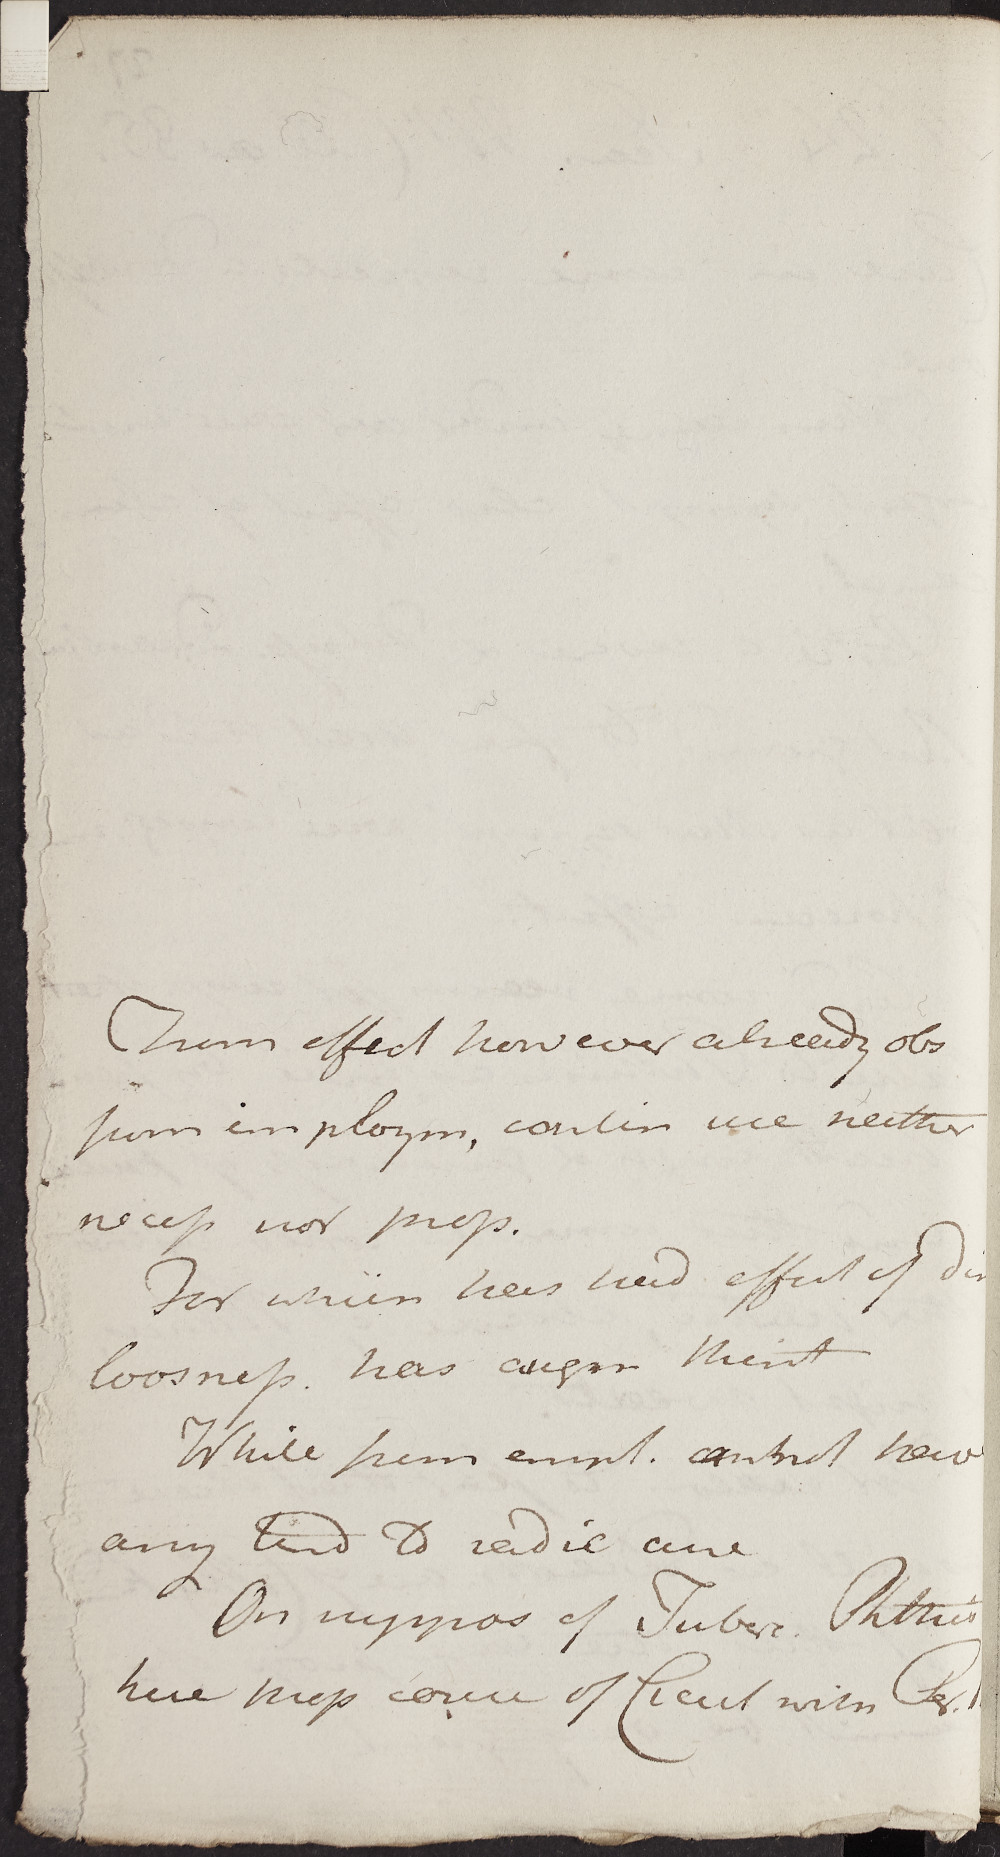 effect however already obs
employm, contin use neither
necess nor prop.
For when has had effect of dim
loosness. has augm thirst
While empl. cannot have
any tend to radic cure
On suppos of Tuberc. Phthis
here prop course of Cicut with Per.